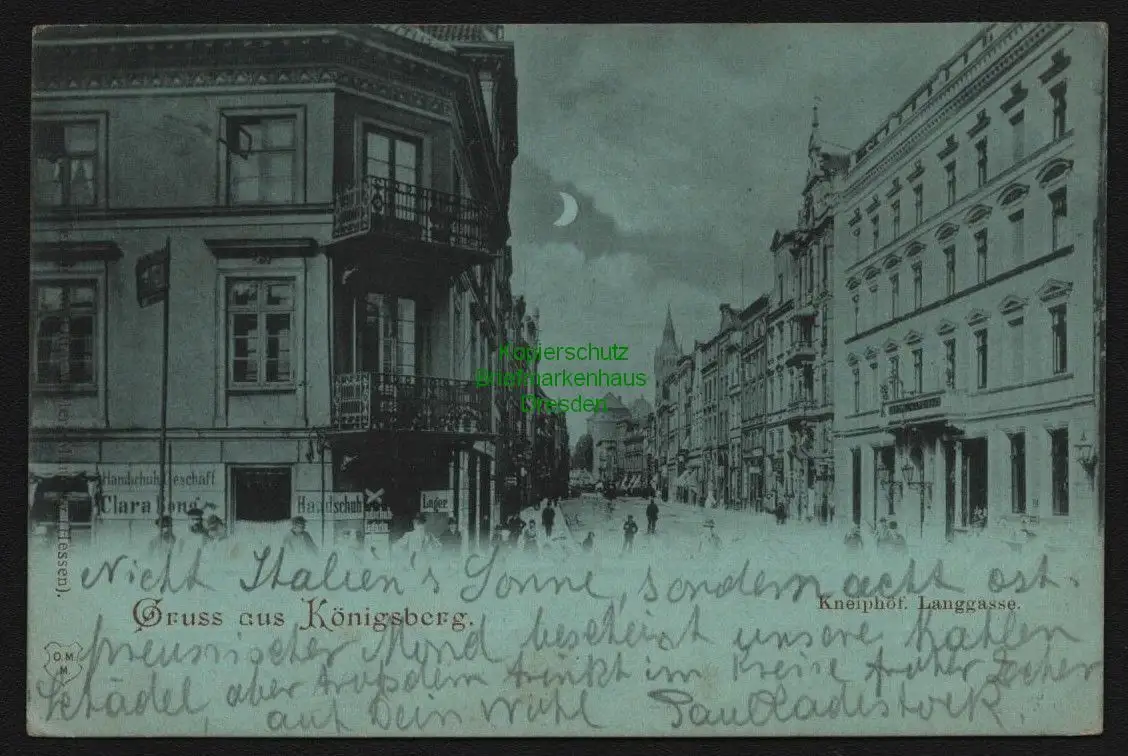 Kopierschutz
Briefmarkenhaus
Dresden
Handschuh Geschäft
Clara
Handschuh
Lager
Nicht Italien's Sonne, sondern acht ost-
Gruss aus Königsberg.
Kneiphöf. Langgasse.
preussischer Mond bescheint unsere Kahlen
Schädel aber trotzdem trinkt im Kreise froher Zecher
auf Dein Wohl Paul
O.M.
M.
(Hessen).